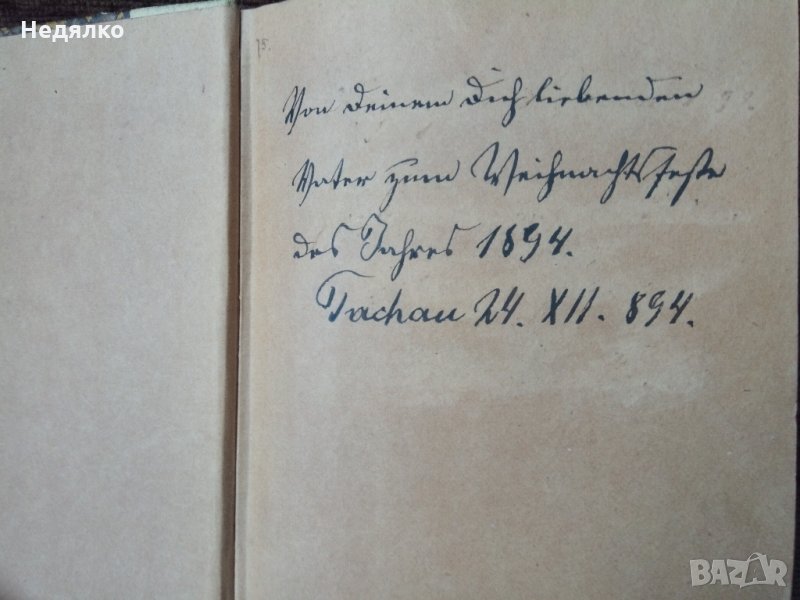 Недялко
75.
Von Deinem Dich liebenden
Vater zum Weihnachtsfeste
des Jahres 1894.
Tachau 24. XII. 894.
BAZAR